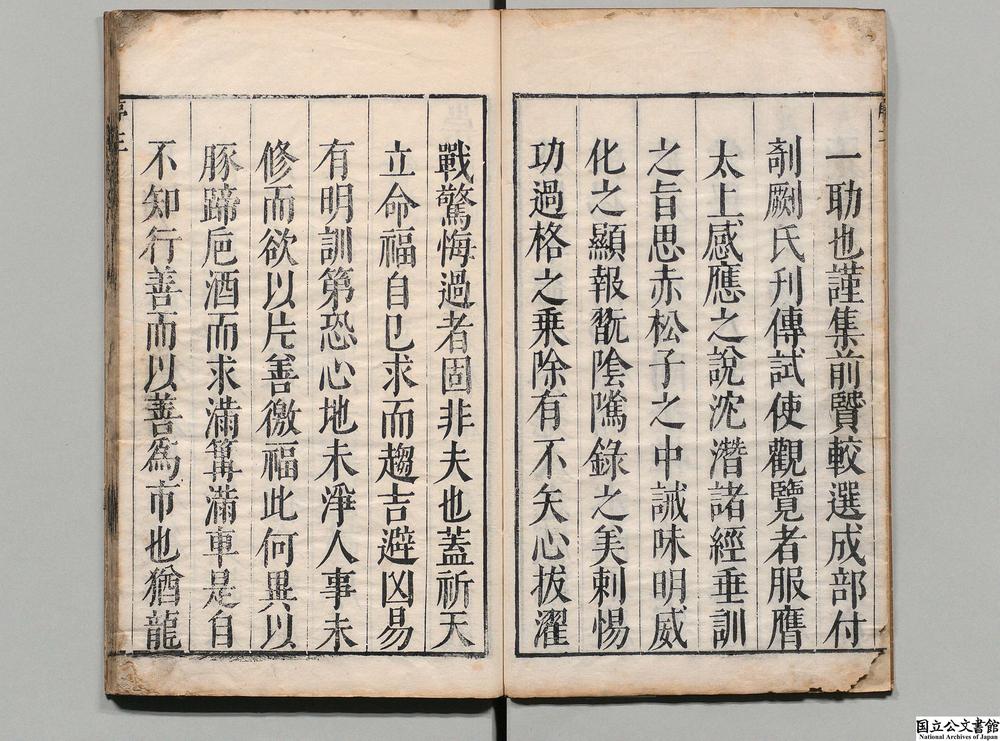 一助也謹集前賢較選成部付
剞劂氏刊傳試使觀覽者服膺
太上感應之說沈潛諸經垂訓
之旨思赤松子之中誡味明威
化之顯報翫陰隲錄之美刺惕
功過格之乗除有不矢心拔濯
戰驚悔過者固非夫也蓋祈天
立命福自已求而趨吉避凶易
有明訓第恐心地未淨人事未
修而欲以片善徼福此何異以
豚蹄巵酒而求滿篝滿車是自
不知行善而以善爲市也猶龍
国立公文書館
National Archives of Japan